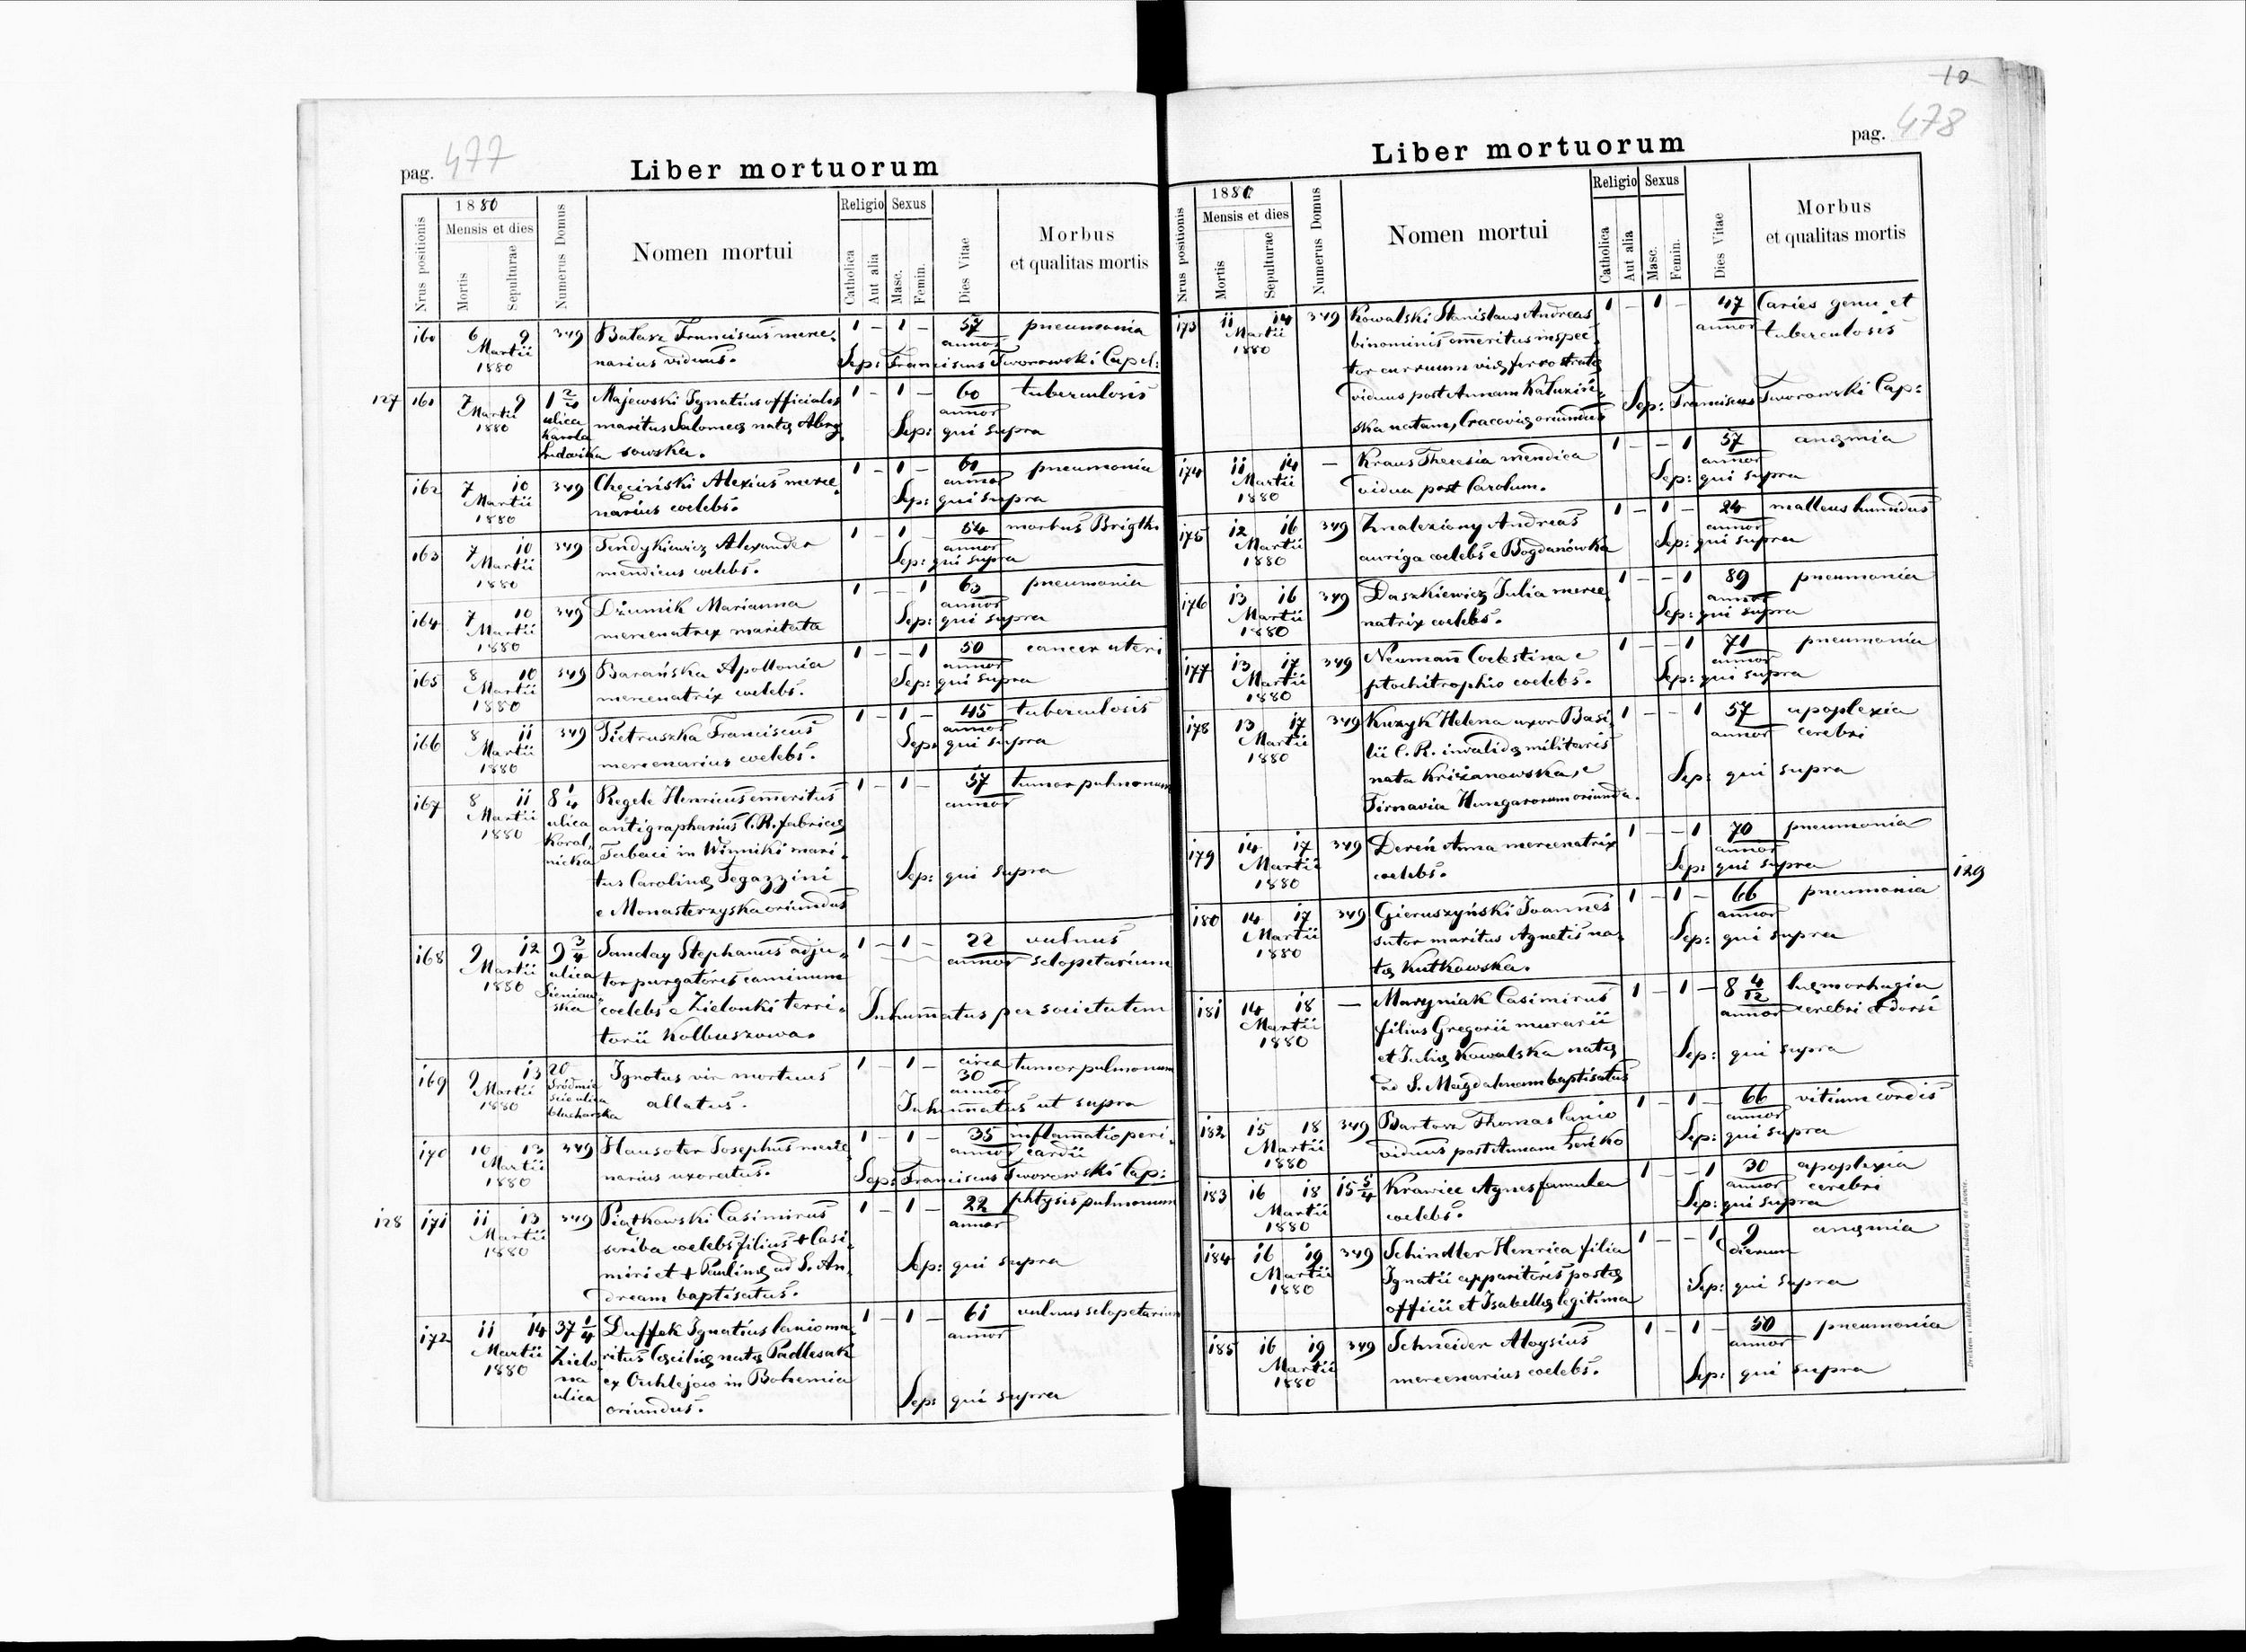 pag. 477
Liber mortuorum
Nrus positionis
1880
Mensis et dies
Mortis
Sepulturae
Numerus Domus
Nomen mortui
Religio
Catholica
Aut alia
Sexus
Masc.
Femin.
Dies Vitae
Morbus
et qualitas mortis
160 6 9 349 Batasz Franciscus merce- 1 – 1 – 57 pneumonia
Martii narius viduus. annor
1880 Sep: Franciscus Tworowski Capel:
127 161 7 9 1 2/4 Majewski Ignatius officialis 1 – 1 – 60 tuberculosis
Martii ulica maritus Salomeę natę annor
1880 Karola sowska. Sep: qui supra
Ludwika
162 7 10 349 Chęciński Alexius merce- 1 – 1 – 61 pneumonia
Martii narius coelebs. annor
1880 Sep: qui supra
163 7 10 349 Tendykiewicz Alexander 1 – 1 – 54 morbus Brigthi
Martii mendicus coelebs. annor
1880 Sep: qui supra
164 7 10 349 Dziumik Marianna 1 – – 1 63 pneumonia
Martii mercenatrix maritata annor
1880 Sep: qui supra
165 8 10 349 Barańska Apollonia 1 – – 1 50 cancer uteri
Martii mercenatrix coelebs. annor
1880 Sep: qui supra
166 8 11 349 Pietruszka Franciscus 1 – 1 – 45 tuberculosis
Martii mercenarius coelebs. annor
1880 Sep: qui supra
167 8 11 8 1/4 Regele Henricus emeritus 1 – 1 – 57 tumor pulmonum
Martii ulica antigrapharius C.R. fabricę annor
1880 Koral- Tabaci in Winniki mari-
nicka tus Carolinę Tegazzini Sep: qui supra
e Monasterzyska oriundus
168 9 12 9 3/4 Sanday Stephanus adju- 1 – 1 – 22 vulnus
Martii ulica tor purgatoris caminum annor sclopetarium
1880 Sieniaw- coelebs e Zielonki terri-
ska torii Kolbuszowa. Inhumatus per societatem
169 9 13 20 Ignotus vir mortuus 1 – 1 – circa 30 tumor pulmonum
Martii Śródmie- allatus. annor
1880 ście ulica Inhumatus ut supra
Blacharska
170 10 13 349 Hausoter Josephus merce- 1 – 1 – 35 inflamatio peri-
Martii narius uxoratus. annor cardii
1880 Sep: Franciscus Tworowski Cap:
128 171 11 13 349 Piątkowski Casimirus 1 – 1 – 22 phtysis pulmonum
Martii scriba coelebs filius + Casi- annor
1880 miri et + Paulinę ad S. An- Sep: qui supra
dream baptisatus.
172 11 14 37 1/4 Duffek Ignatius lanio ma- 1 – 1 – 61 vulnus sclopetarium
Martii Zielo- ritus Cęcilię natę Padlesak annor
1880 na ex Ouhlejow in Bohemia
ulica oriundus. Sep: qui supra
10
pag. 478
Liber mortuorum
Nrus positionis
1880
Mensis et dies
Mortis
Sepulturae
Numerus Domus
Nomen mortui
Religio
Catholica
Aut alia
Sexus
Masc.
Femin.
Dies Vitae
Morbus
et qualitas mortis
173 11 14 349 Kowalski Stanislaus Andreas 1 – 1 – 47 Caries genu et
Martii binominis emeritus inspec- annor tuberculosis
1880 tor curruum vię ferro stratę
viduus post Annam Kałuziń- Sep: Franciscus Tworowski Cap:
ska natam, Cracovię oriundus
174 11 14 – Kraus Theresia mendica 1 – – 1 57 anęmia
Martii vidua post Carolum. annor
1880 Sep: qui supra
175 12 16 349 Znaleziony Andreas 1 – 1 – 24 malleus humidus
Martii auriga coelebs e Bogdanówka annor
1880 Sep: qui supra
176 13 16 349 Daszkiewicz Julia merce- 1 – – 1 89 pneumonia
Martii natrix coelebs. annor
1880 Sep: qui supra
177 13 17 349 Neumann Coelestina e 1 – – 1 71 pneumonia
Martii ptochotrophio coelebs. annor
1880 Sep: qui supra
178 13 17 349 Kuzyk Helena uxor Basi- 1 – – 1 57 apoplexia
Martii lii C. R. invalidę militaris annor cerebri
1880 nata Kriżanowska, e Sep: qui supra
Tirnavia Hungarorum oriunda.
179 14 17 349 Dereń Anna mercenatrix 1 – – 1 70 pneumonia
Martii coelebs. annor
1880 Sep: qui supra
129
180 14 17 349 Gieruszyński Joannes 1 – 1 – 66 pneumonia
Martii sutor maritus Agnetis na- annor
1880 tę Kutkowska. Sep: qui supra
181 14 18 – Maryniak Casimirus 1 – 1 – 8 4/12 hęmorhagia
Martii filius Gregorii murarii annor cerebri et dorsi
1880 et Julię Kowalska natę Sep: qui supra
ad S. Magdalenam baptisatus
182 15 18 349 Bartosz Thomas lanio 1 – 1 – 66 vitium cordis
Martii viduus post Annam annor
1880 Sep: qui supra
183 16 18 15 5/4 Krawiec Agnes famula 1 – – 1 30 apoplexia
Martii coelebs. annor cerebri
1880 Sep: qui supra
184 16 19 349 Schindler Henrica filia 1 – – 1 9 anęmia
Martii Ignatii apparitoris postę dierum
1880 officii et Isabellę legitima Sep: qui supra
185 16 19 349 Schneider Aloysius 1 – 1 – 50 pneumonia
Martii mercenarius coelebs. annor
1880 Sep: qui supra